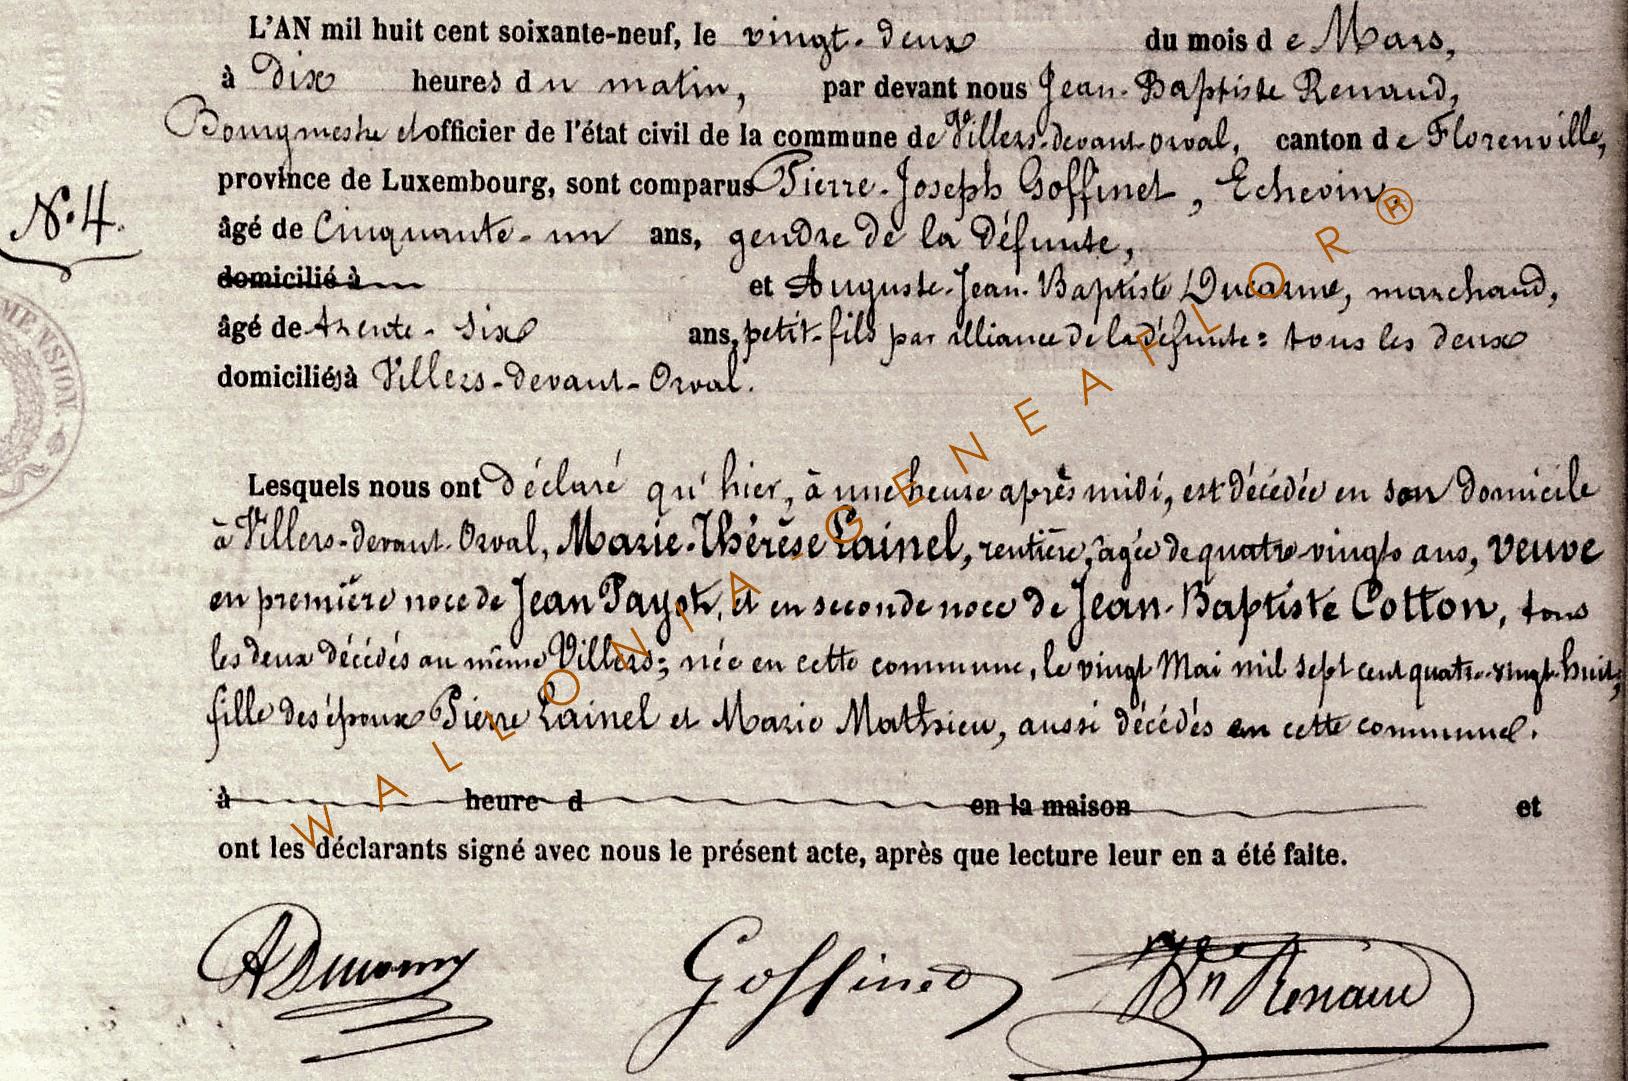 L'AN mil huit cent soixante-neuf, le vingt-deux du mois de Mars,
à dix heures du matin, par devant nous Jean-Baptiste Renaud,
Bourgmestre et officier de l'état civil de la commune de Villers-devant-Orval, canton de Florenville,
province de Luxembourg, sont comparus Pierre-Joseph Goffinet, Echevin,
N° 4.
âgé de Cinquante-un ans, gendre de la Défunte,
domicilié à et Auguste-Jean-Baptiste Ducarme, marchand,
âgé de trente-six ans, petit-fils par alliance de la défunte: tous les deux
domiciliés à Villers-devant-Orval.
MENSION.
Lesquels nous ont déclaré qu'hier, à une heure après midi, est décédée en son domicile
à Villers-devant-Orval, Marie-Thérèse Lainel, rentière, âgée de quatre-vingts ans, veuve
en première noce de Jean Payot, et en seconde noce de Jean-Baptiste Cotton, tous
les deux décédés au même Villers; née en cette commune, le vingt Mai mil sept cent quatre-vingt-huit,
fille des époux Pierre Lainel et Marie Mathieu, aussi décédés en cette commune.
à heure d en la maison et
ont les déclarants signé avec nous le présent acte, après que lecture leur en a été faite.
Goffinet Renaud
WALLONIA-GENEAFLOR®